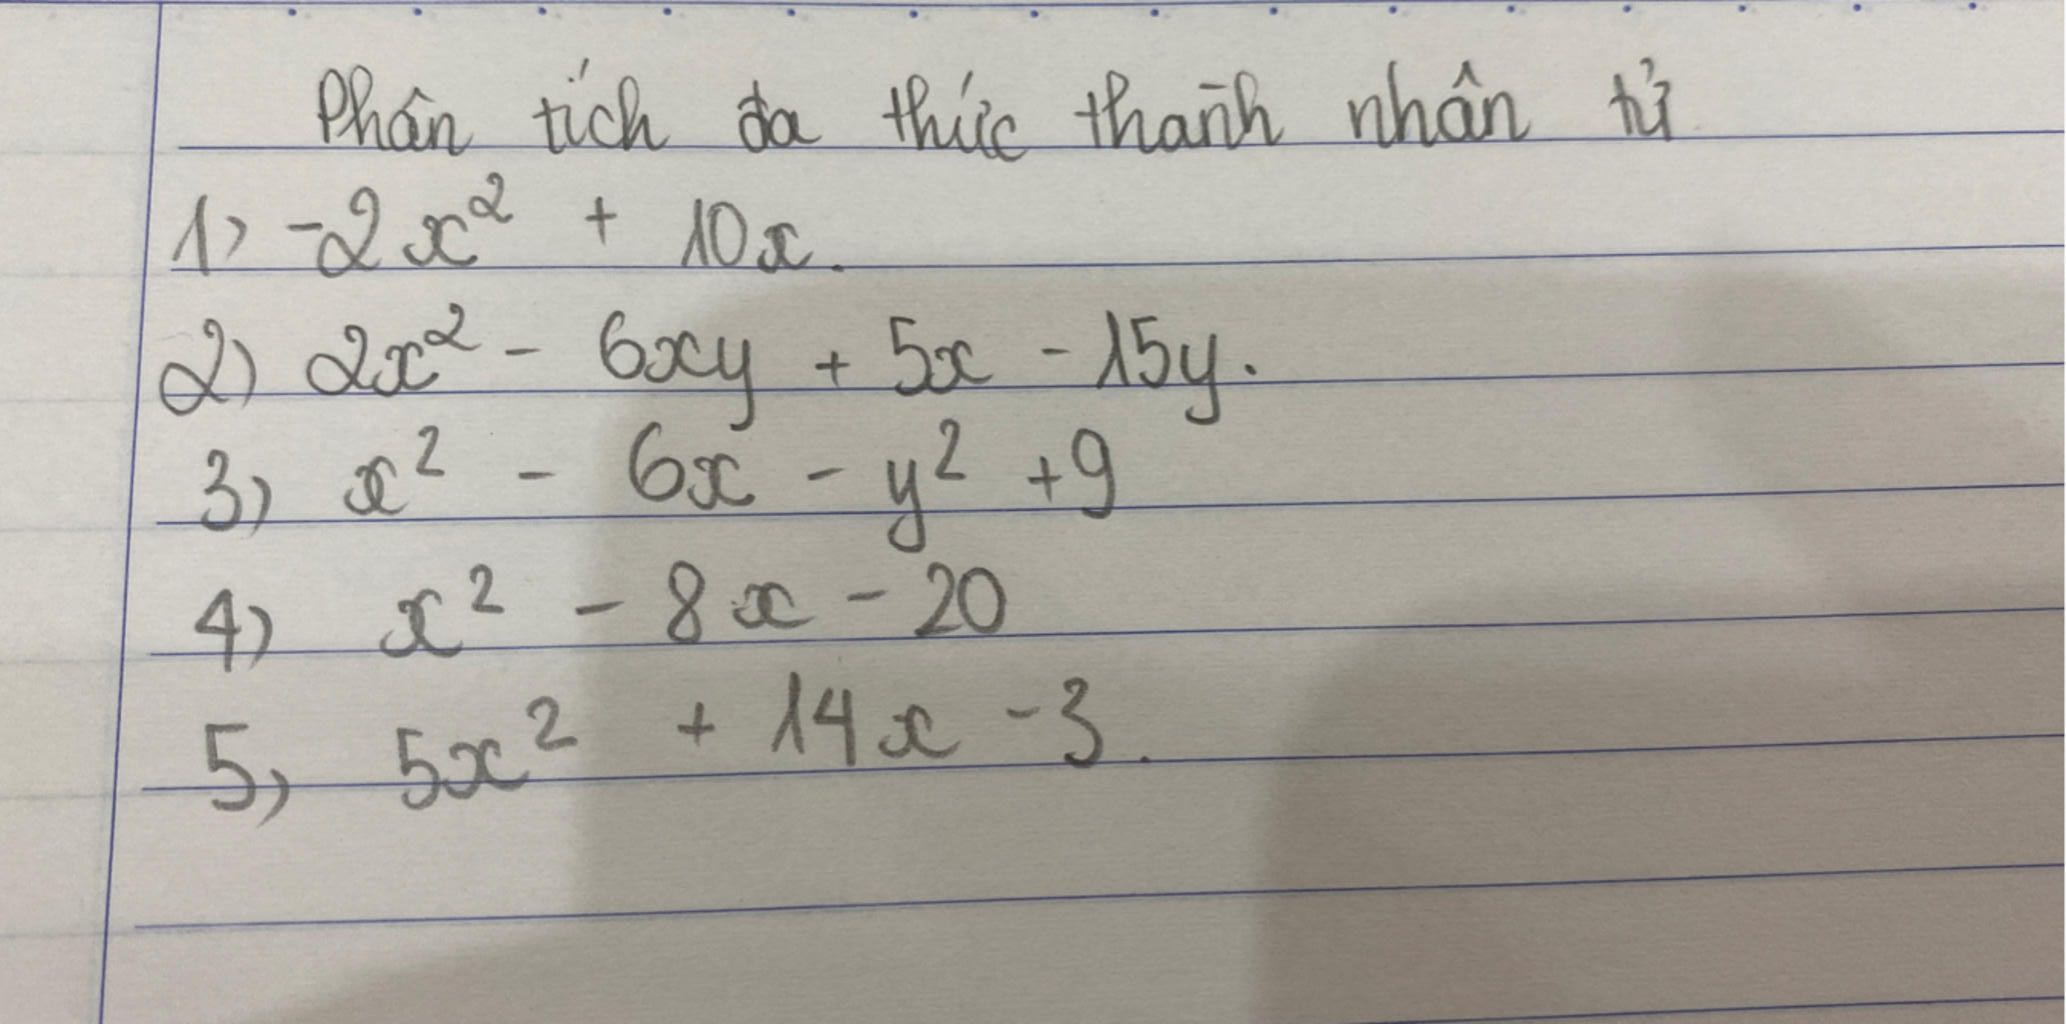 Phân tích đa thức thành nhân tử
1) -2x² + 10x.
2) 2x² - 6xy + 5x - 15y.
3) x² - 6x - y² + 9
4) x² - 8x - 20
5) 5x² + 14x - 3.